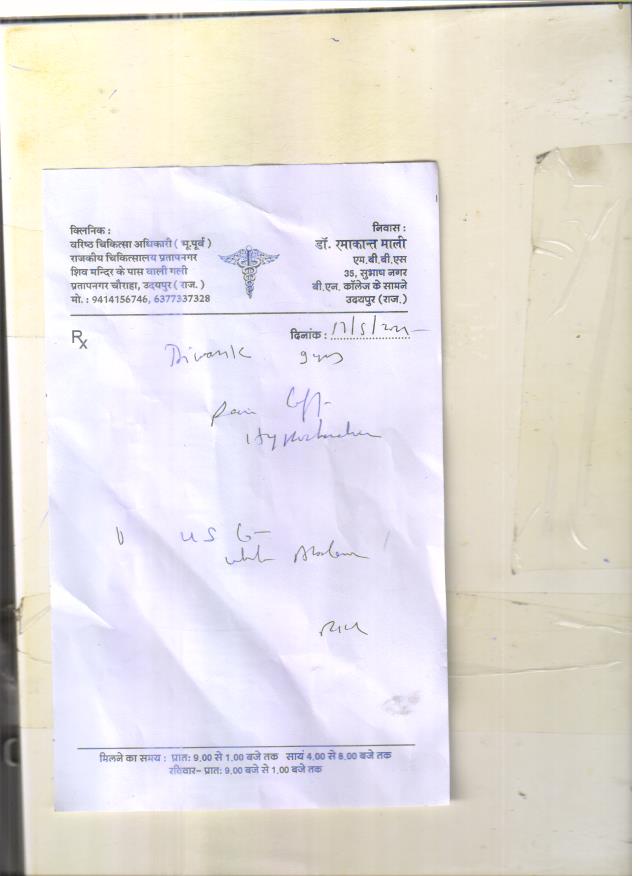 क्लिनिक :
वरिष्ठ चिकित्सा अधिकारी ( भू.पूर्व )
राजकीय चिकित्सालय प्रतापनगर
शिव मन्दिर के पास वाली गली
प्रतापनगर चौराहा, उदयपुर ( राज. )
मो. : 9414156746, 6377337328
निवास :
डॉ. रमाकान्त माली
एम.बी.बी.एस
35, सुभाष नगर
बी.एन. कॉलेज के सामने
उदयपुर (राज.)
Rx
दिनांक :
Divank 9 yrs
Pain Left
Hypochondrium
USG
whole Abdomen
मिलने का समय : प्रातः 9.00 से 1.00 बजे तक सायं 4.00 से 8.00 बजे तक
रविवार– प्रातः 9.00 बजे से 1.00 बजे तक